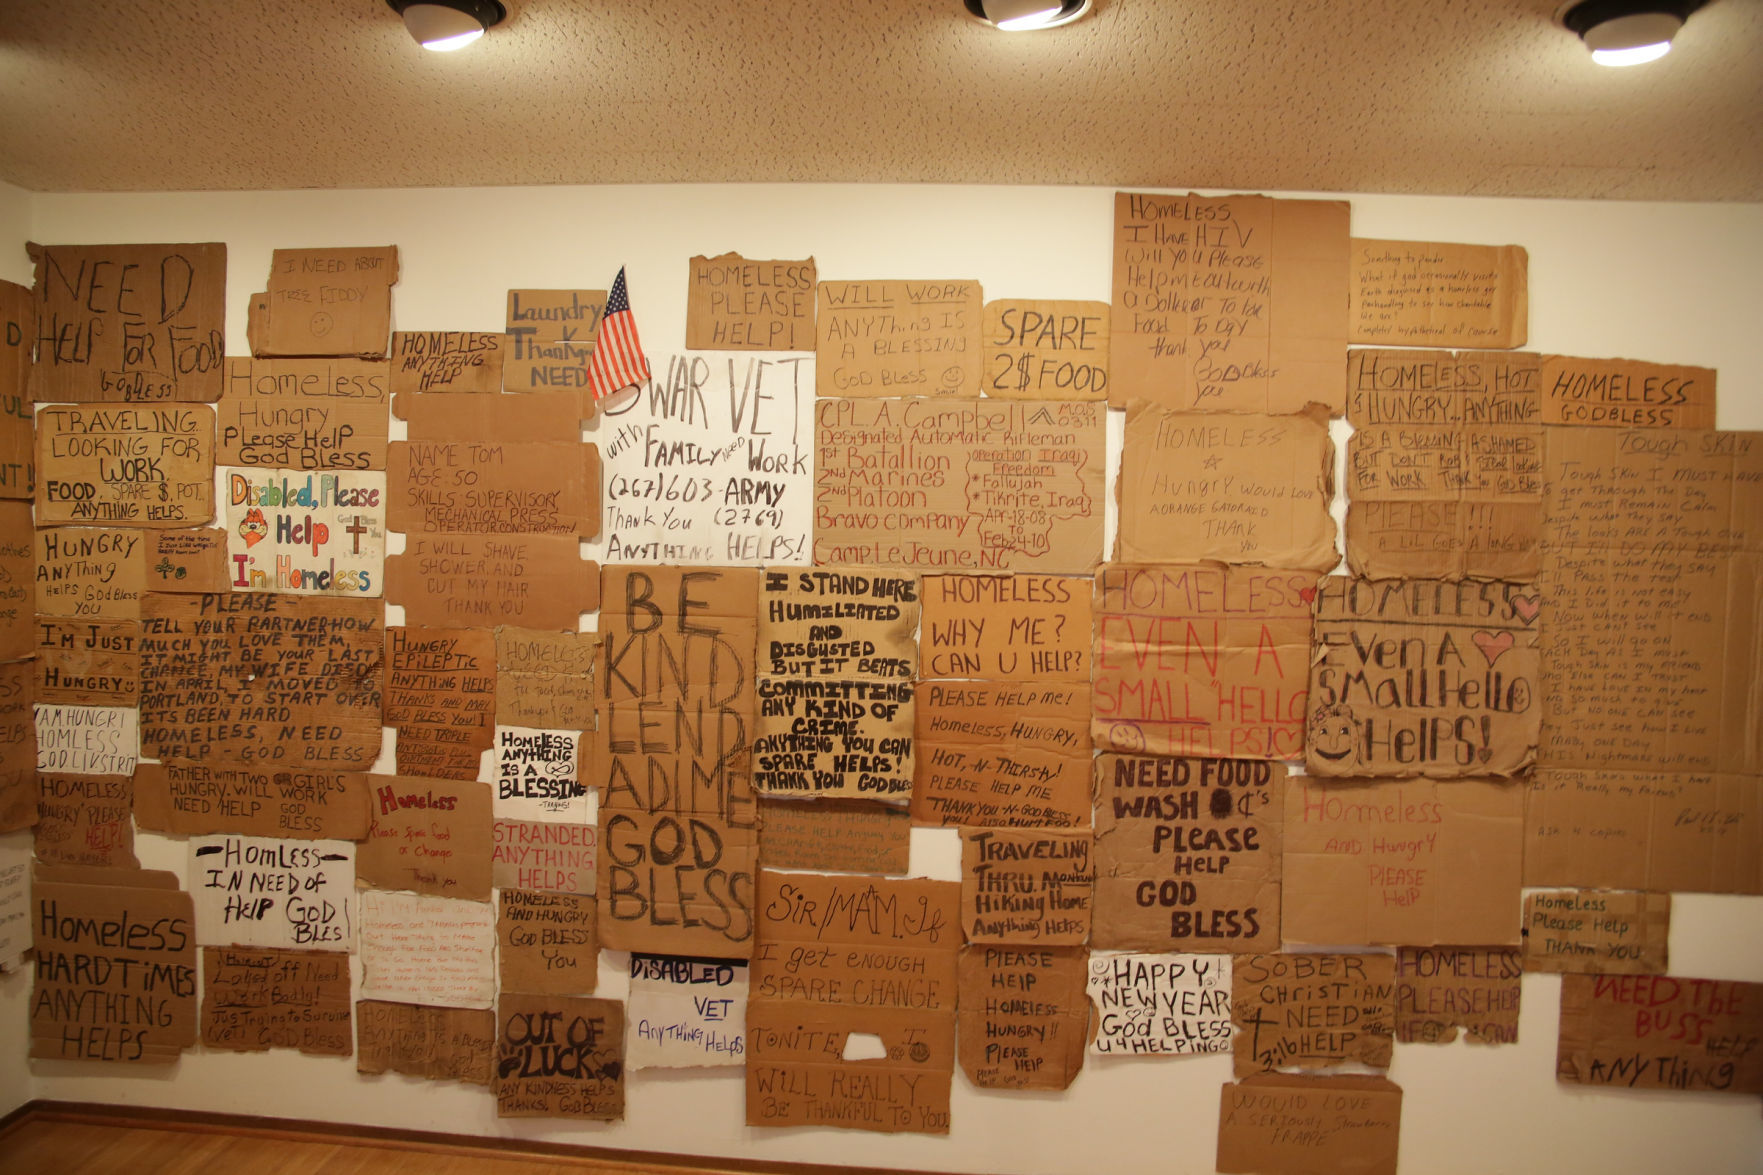 NEED
HELP FOR FOOD
GODBLESS
I NEED ABOUT
TREE FIDDY
HOMELESS
ANYTHING
HELP
Laundry
Thank
NEED
HOMELESS
PLEASE
HELP!
WILL WORK
ANYThing IS
A BLESSING
GOD BLESS
Smile!
SPARE
2$ FOOD
HOMELESS
I HAVE HIV
Will you Please
Help
a Dollar or To
Food To Day
thank you
God Bless
you
Something to ponder
What if god occasionally visits
Earth disguised as a homeless guy
Panhandling to see how charitable
We are?
Completely hypothetical of course
TRAVELING
LOOKING FOR
WORK.
FOOD, SPARE $, POT,
ANYTHING HELPS.
Homeless,
Hungry
Please Help
God Bless
Disabled, Please
Help
God Bless You
Im Homeless
NAME TOM
AGE:50
SKILLS: SUPERVISORY
MECHANICAL PRESS
OPERATOR CONSTRUCTION
I WILL SHAVE,
SHOWER, AND
CUT MY HAIR
THANK YOU
WAR VET
with FAMILY NEED WORK
(267)603-ARMY
THANK YOU (2769)
ANYTHING HELPS!
CPL. A. Campbell M.O.S 0311
Designated Automatic Rifleman
1st Batallion
2nd Marines
2nd Platoon
Bravo company
Camp LeJeune, NC
operation Iraqi
Freedom
*Fallujah
*Tikrite, Iraq
Apr-18-08
To
Feb 24-10
HOMELESS
Hungry would Love
A ORANGE GATORAID
THANK
YOU
HOMELESS, HOT
& HUNGRY... ANYTHING
IS A BLESSING! ASHAMED
BUT DON'T ROB!
FOR WORK. THANK YOU GOD Bless
PLEASE!!!
A LIL GOES A LONG
HOMELESS
GODBLESS
Tough SKIN
Tough Skin I MUST HAVE
To get Through The Day
I must Remain Calm
Despite what They SAY
The looks ARE A Tough one
BUT I'LL DO MY BEST
Despite what they SAY
I'll Pass The Test
This life is not easy
Now when will it end
So I will go on
EACH Day AS I must
Tough Skin is my friend
who else CAN I TRUST
I have Love in my heart
So much to give
But NO ONE CAN see
Just see how I Live
Maybe one DAY
His Nightmare will end
Tough Skin's what I have
Is it Really my friend?
HUNGRY
ANYTHING
HELPS God Bless
YOU
I'M JUST
HUNGRY
PLEASE
TELL YOUR PARTNER HOW
MUCH YOU LOVE THEM,
IT MIGHT BE YOUR LAST
CHANCE, MY WIFE DIED
IN APRIL, I MOVED TO
PORTLAND, TO START OVER
ITS BEEN HARD
HOMELESS, NEED
HELP - GOD BLESS
HUNGRY
EPILEPTIC
ANYTHING HELPS
THANKS AND MAY
GOD BLESS You!
BE
KIND
LEND
A DIME
GOD
BLESS
I STAND HERE
HUMILIATED
AND
DISGUSTED
BUT IT BEATS
COMMITTING
ANY KIND OF
CRIME.
ANYTHING YOU CAN
SPARE HELPS!
THANK YOU GOD BLESS
HOMELESS
WHY ME?
CAN U HELP?
PLEASE HELP me!
Homeless, HUNGRY,
HOT, -N- THIRSTY!
PLEASE HELP ME
THANK YOU -N- GOD BLESS
YOU!
HOMELESS
EVEN A
SMALL "HELLO"
HELPS!
HOMELESS
EVEN A
SMALL HellO
HelPS!
I AM HUNGRI
HOMLESS
HOMELESS
HUNGRY PLEASE
HELP!
FATHER WITH TWO GIRL'S
HUNGRY. WILL WORK
NEED HELP GOD
BLESS
Homeless
Please Spare food
or Change
Thank you
HOMELESS
ANYTHING
IS A
BLESSING
STRANDED.
ANYTHING
HELPS
NEED FOOD
WASH ¢'s
PLEASE
HELP
GOD
BLESS
Homeless
AND Hungry
PLEASE
Help
-HOMLESS-
IN NEED OF
HELP GOD
BLES
HOMELESS
AND HUNGRY
GOD BLESS
YOU
Sir/MAM. If
I get ENOUGH
SPARE CHANGE
TONITE, I
WILL REALLY
BE THANKFUL TO YOU.
TRAVELING
THRU.
HIKING HOME
Anything HELPS
Homeless
HARDTIMES
ANYTHING
HELPS
Layed off Need
Work Badly!
Jus Trying to Survive
GOD Bless
OUT OF
LUCK
ANY KINDNESS HELPS
THANKS! GOD BLESS
DISABLED
VET
ANYTHING HelPS
PLEASE
HELP
HOMELESS
HUNGRY!!
PLEASE
HELP
HAPPY
NEW YEAR
God BLESS
U 4 HELPING
SOBER
CHRISTIAN
NEED
HELP
3:16
HOMELESS
PLEASE HELP
IF CAN
Homeless
Please Help
THANK YOU
NEED The
BUSS
HELP
ANYTHING
WOULD LOVE
A SERIOUSLY Strawberry
FRAPPE